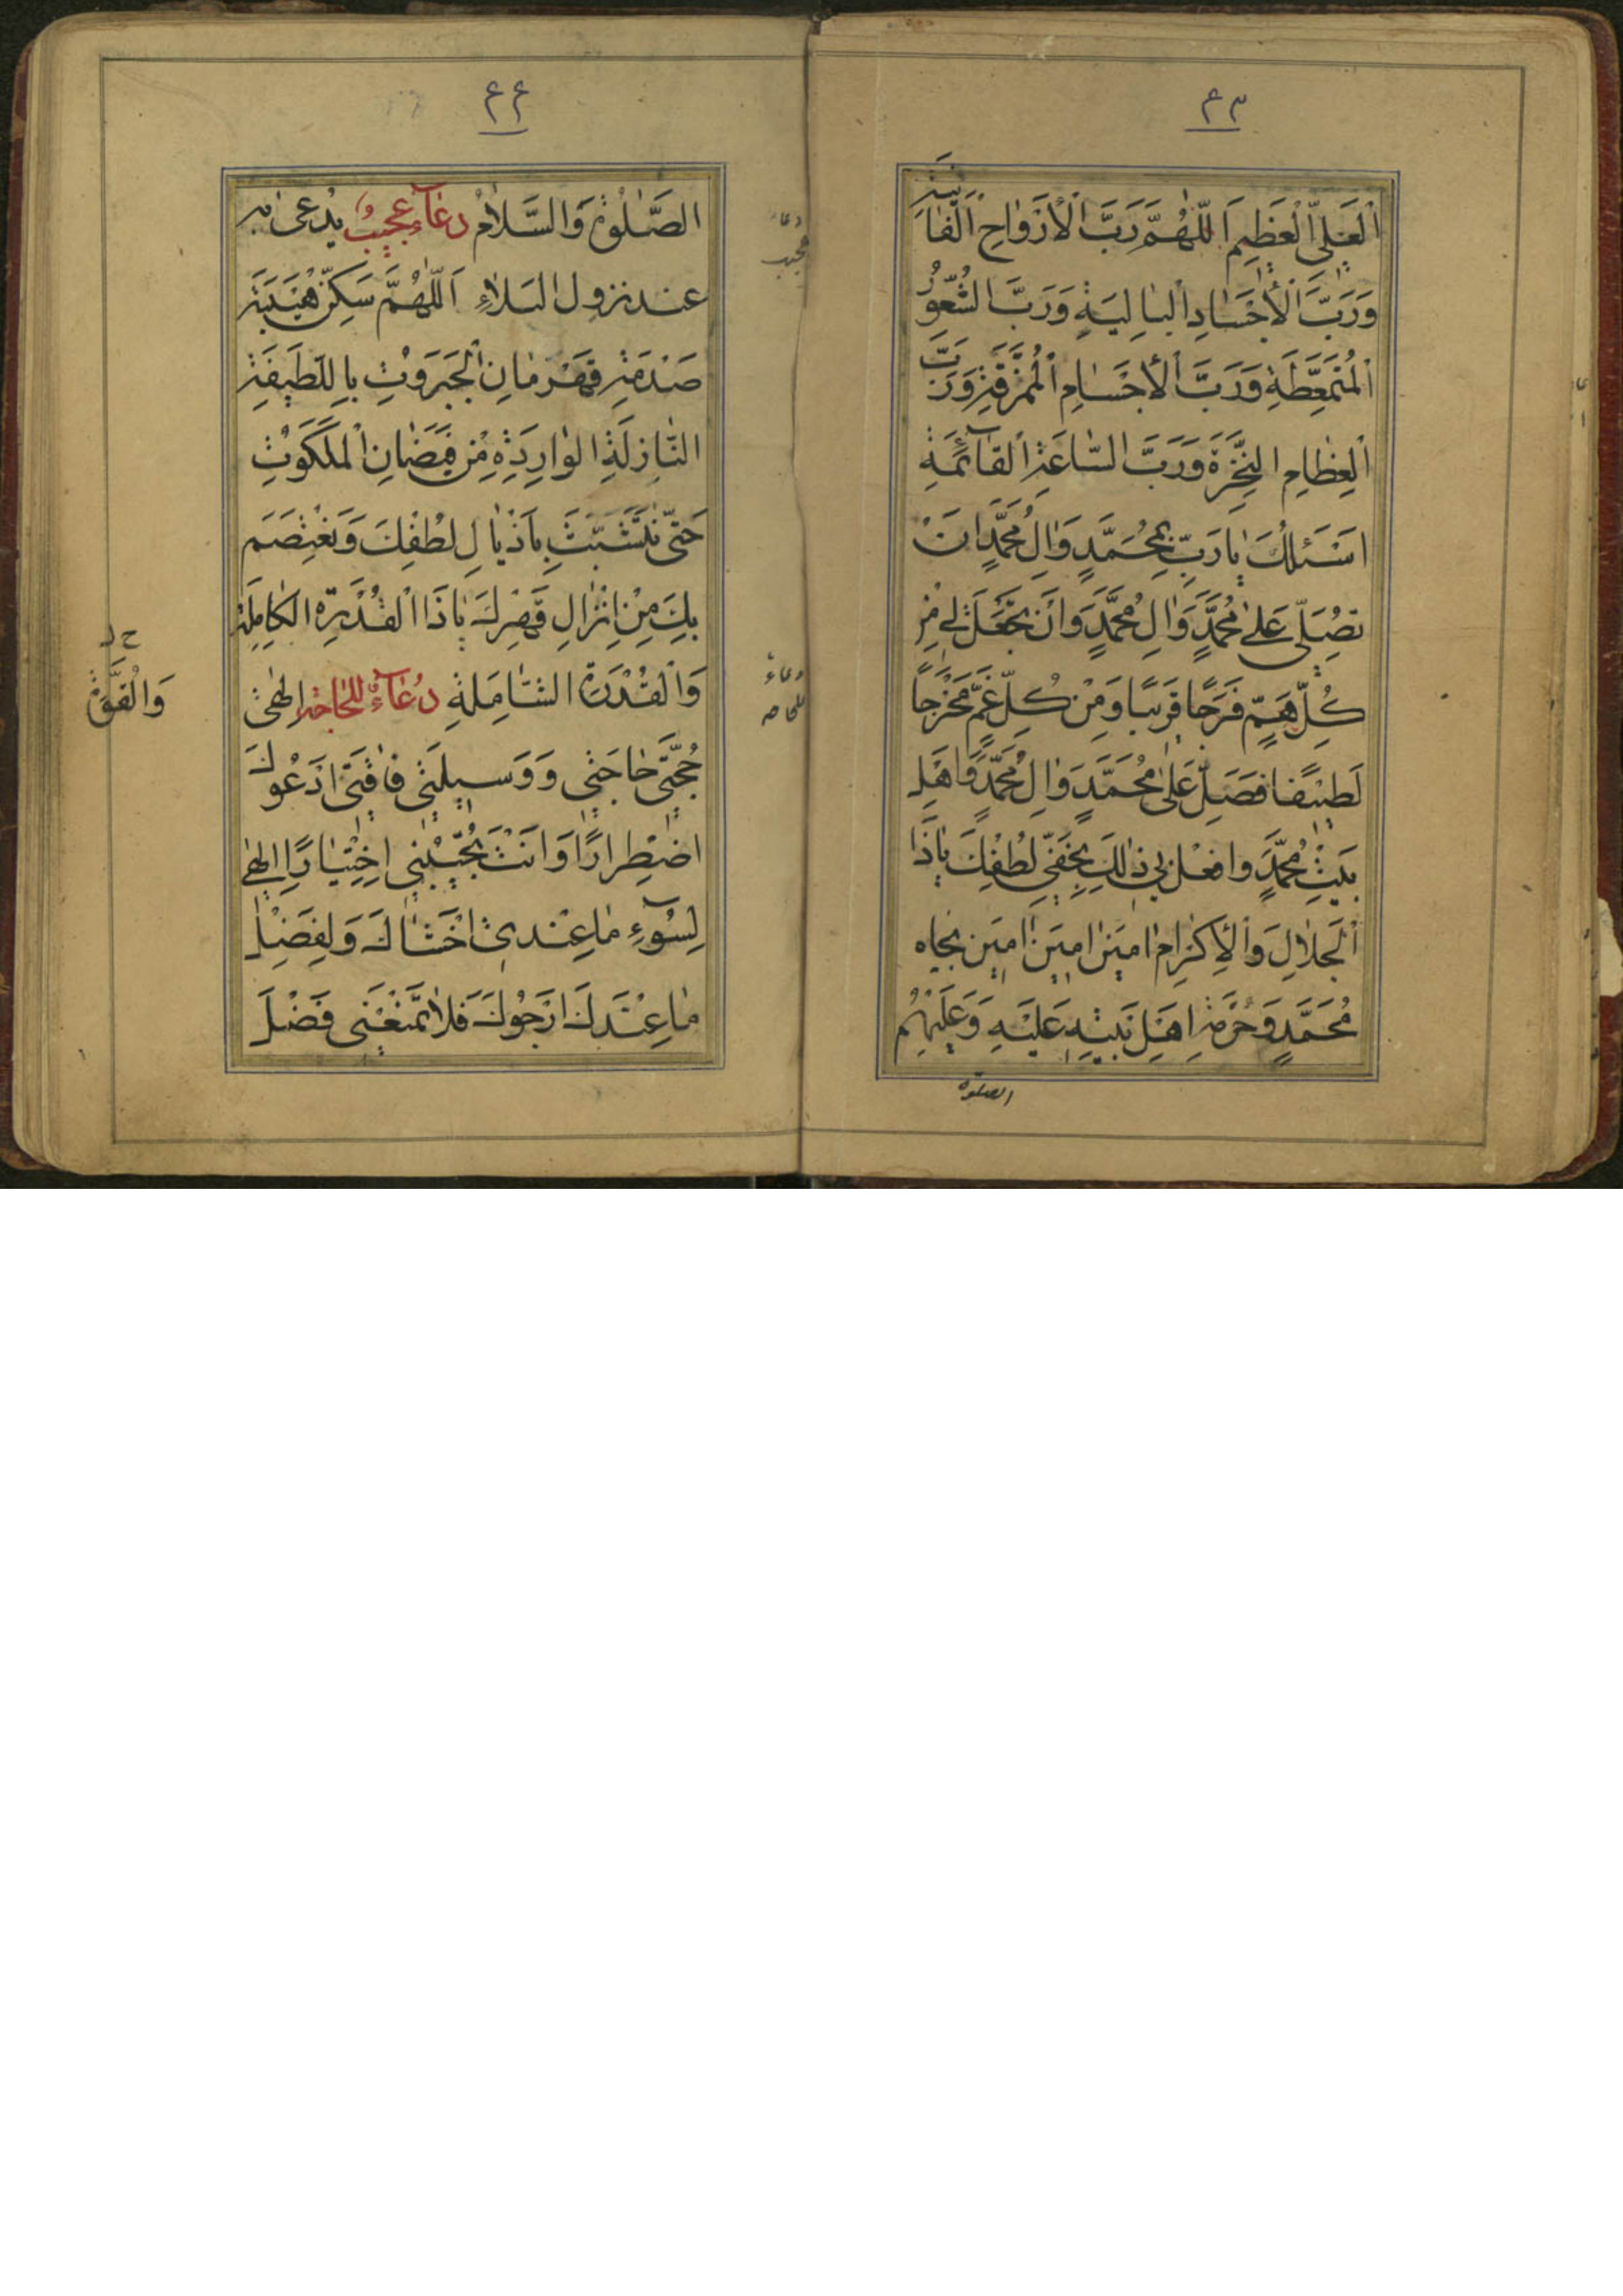 ۴۳
اَلْعَلِىِّ الْعَظِيمِ اَللّٰهُمَّ رَبَّ الْأَرْوٰاحِ الْفٰانِيَةِ
وَرَبَّ الْأَجْسٰادِ الْبٰالِيَةِ وَرَبَّ الشُّعُورِ
الْمُتَمَعِّطَةِ وَرَبَّ الْأَجْسٰامِ الْمُمَزَّقَةِ وَرَبَّ
الْعِظٰامِ النَّخِرَةِ وَرَبَّ السّٰاعَةِ الْقٰائِمَةِ
اَسْئَلُكَ يٰا رَبِّ بِمُحَمَّدٍ وَاٰلِ مُحَمَّدٍ اَنْ
تُصَلِّىَ عَلىٰ مُحَمَّدٍ وَاٰلِ مُحَمَّدٍ وَاَنْ تَجْعَلَ لِى مِنْ
كُلِّ هَمٍّ فَرَجًا قَرِيبًا وَمِنْ كُلِّ غَمٍّ مَخْرَجًا
لَطِيفًا فَصَلِّ عَلىٰ مُحَمَّدٍ وَاٰلِ مُحَمَّدٍ وَاَهْلِ
بَيْتِ مُحَمَّدٍ وَافْعَلْ بِى ذٰلِكَ بِخَفِىِّ لُطْفِكَ يٰا ذَا
الْجَلٰالِ وَالْاِكْرٰامِ اٰمِينَ اٰمِينَ اٰمِينَ بِجٰاهِ
مُحَمَّدٍ وَحُرْمَةِ اَهْلِ بَيْتِهِ عَلَيْهِ وَعَلَيْهِمُ
الصلوة
۴۴
الصَّلٰوةُ وَالسَّلٰامُ دُعٰاءٌ عَجِيبٌ يُدْعىٰ بِهِ
عند نزول البَلٰاءِ اَللّٰهُمَّ سَكِّنْ هَيْبَةَ
صَدْمَةِ قَهْرَمٰانِ الْجَبَرُوتِ بِاللَّطِيفَةِ
النّٰازِلَةِ الْوٰارِدَةِ مِنْ فَيَضٰانِ الْمَلَكُوتِ
حَتّىٰ نَتَشَبَّثَ بِاَذْيٰالِ لُطْفِكَ وَنَعْتَصِمَ
بِكَ مِنْ اِنْزٰالِ قَهْرِكَ يٰا ذَا الْقُدْرَةِ الْكٰامِلَةِ
وَالْقُدْرَةِ الشّٰامِلَةِ دُعٰاءٌ لِلْحٰاجَةِ اِلٰهِى
حُجَّتِى حٰاجَتِى وَ وَسِيلَتِى فٰاقَتِى اَدْعُوكَ
اضْطِرٰارًا وَاَنْتَ تُجِيبُنِى اخْتِيٰارًا اِلٰهِى
لِسُوءِ مٰا عِنْدِى اَخْشٰاكَ وَلِفَضْلِ
مٰا عِنْدَكَ اَرْجُوكَ فَلٰا تَمْنَعْنِى فَضْلَ
دعاء
عجيب
دعاء
للحاجه
وَالْقُوَّةِ